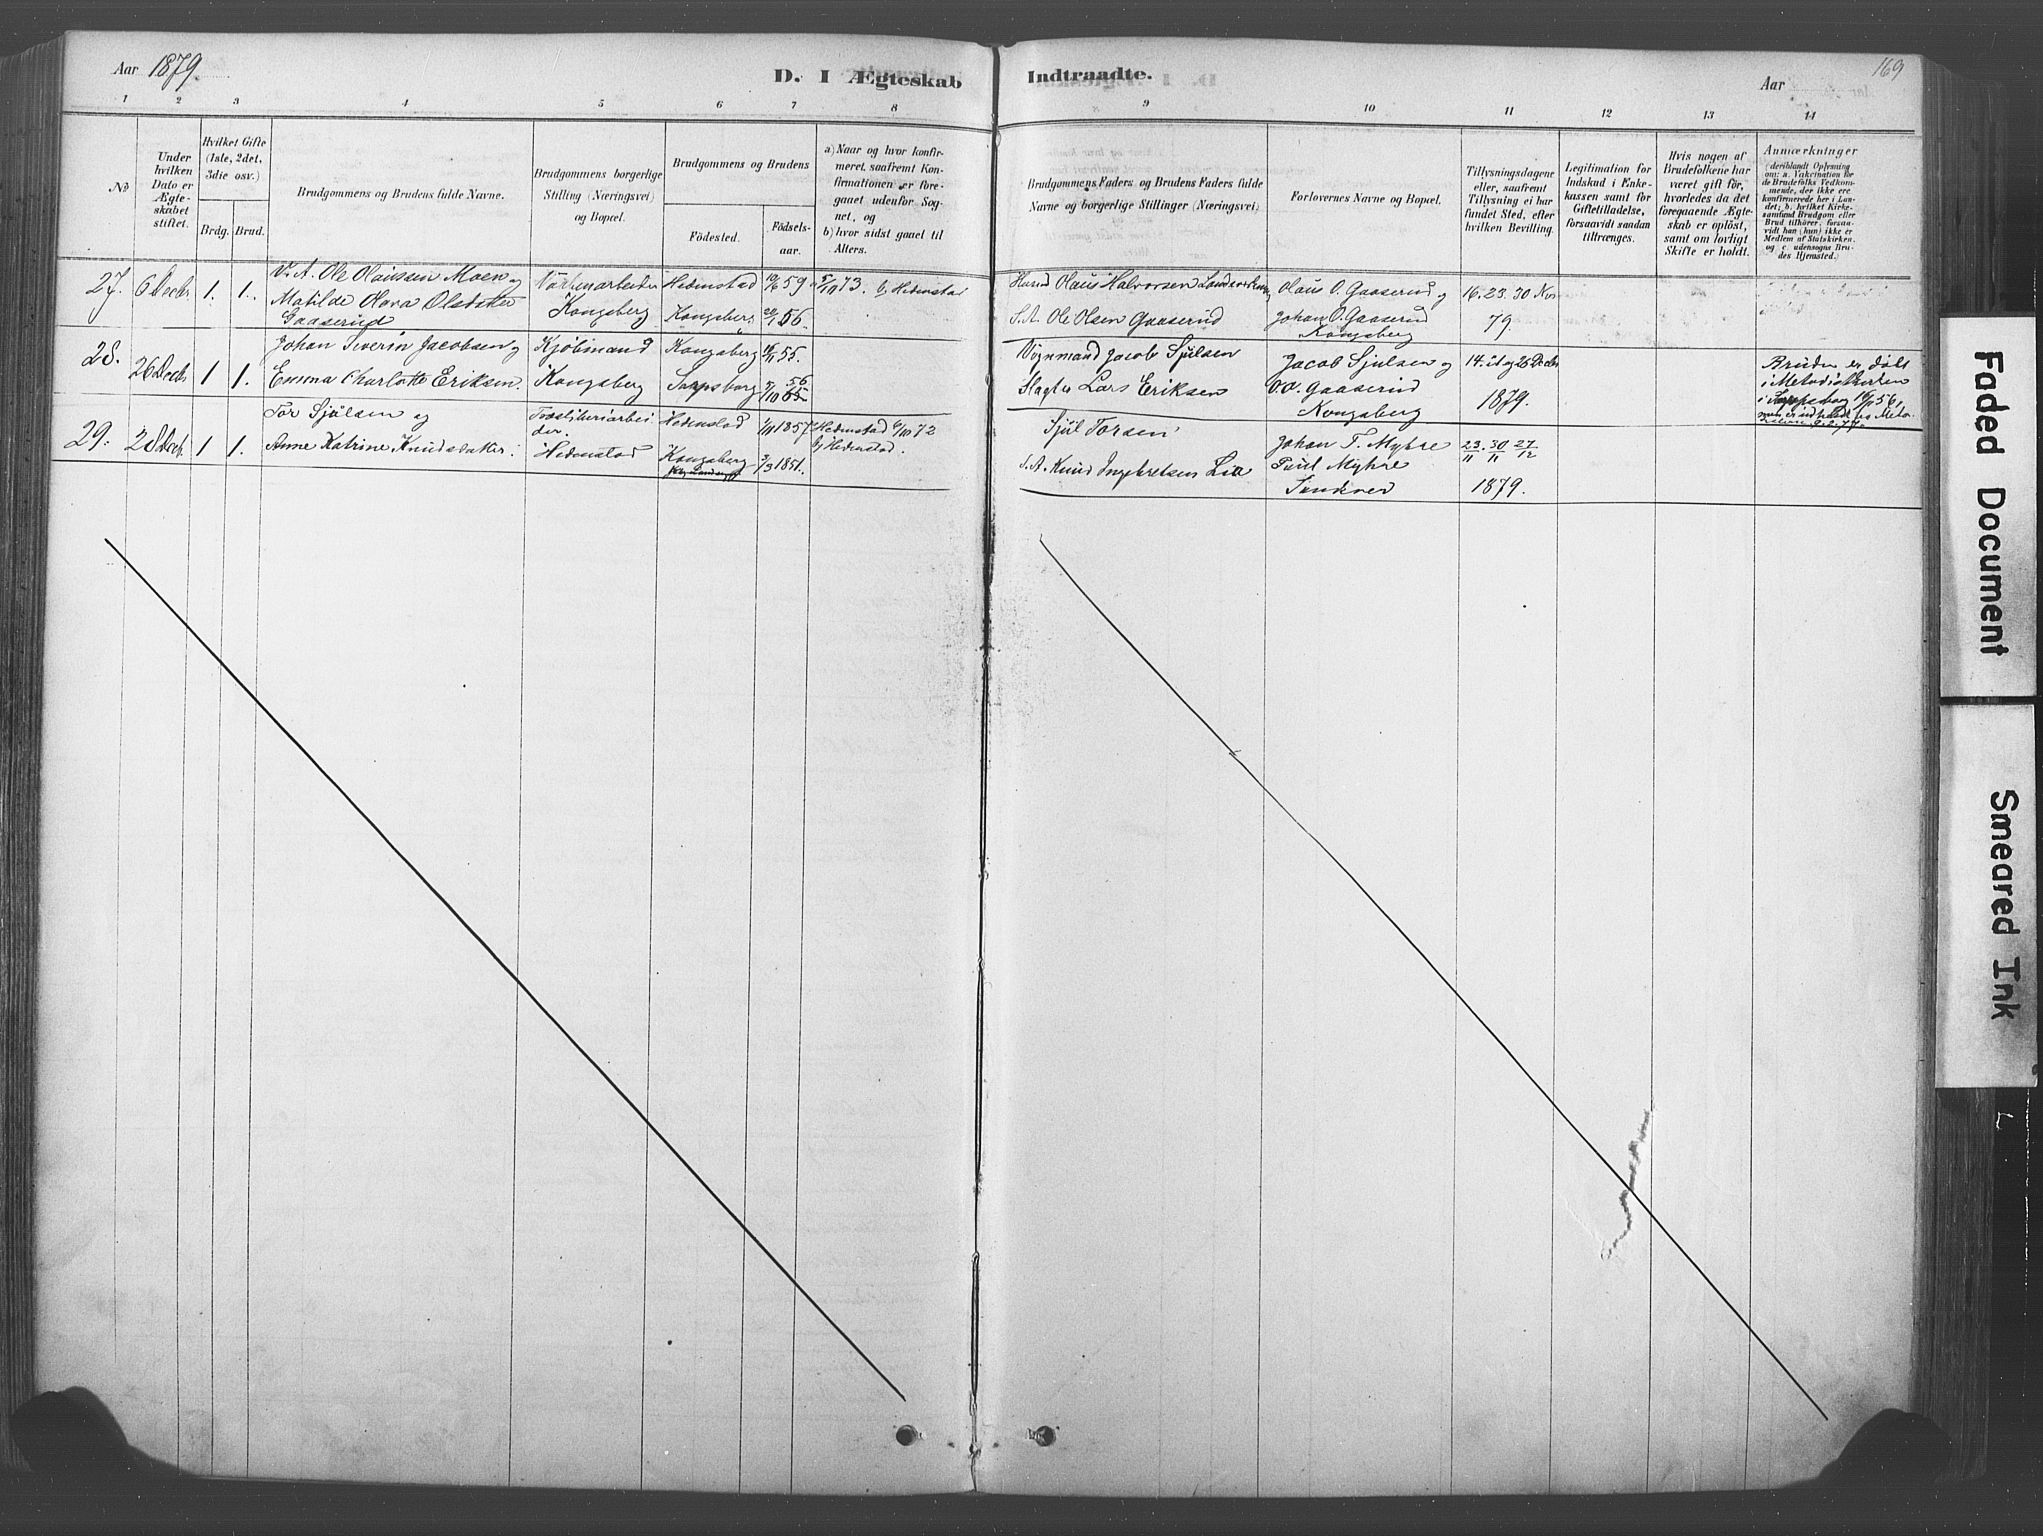 Aar 1879
D. I Ægteskab
Indtraadte.
Aar
169
1 2 3 4 5 6 7 8 9 10 11 12 13 14
No
Under hvilken Dato er Ægteskabet stiftet.
Hvilket Gifte (1ste, 2det, 3die osv.)
Brdg. Brud.
Brudgommens og Brudens fulde Navne.
Brudgommens borgerlige Stilling (Næringsvei) og Bopæl.
Brudgommens og Brudens
Födested.
Födselsaar.
a) Naar og hvor konfirmeret, saafremt Konfirmationen er foregaaet udenfor Sognet, og
b) hvor sidst gaaet til Alters.
Brudgommens Faders og Brudens Faders fulde Navne og borgerlige Stillinger (Næringsvei)
Forlovernes Navne og Bopæl.
Tillysningsdagene eller, saafremt Tillysning ei har fundet Sted, efter hvilken Bevilling.
Legitimation for Indskud i Enkekassen samt for Giftetilladelse, forsaavidt saadan tiltrænges.
Hvis nogen af Brudefolkene har været gift för, hvorledes da det foregaaende Ægteskab er oplöst, samt om lovligt Skifte er holdt.
Anmærkninger
(deriblandt Oplysning om: a. Vakcination for de Brudefolks Vedkommende, der ikke ere konfirmerede her i Landet; b. hvilket Kirkesamfund Brudgom eller Brud tilhörer, forsaavidt han (hun) ikke er Medlem af Statskirken, og c. udensogns Brudes Hjemsted.)
27. 6 Decbr 1. 1.
Ole Olaussen Moen og
Matilde Olava Olsdatter
Gaaserud
Kongsberg
Hedenstad 10/6 59
Kongsberg 56.
5/10 73. b, Hedenstad
Olaus Halvorsen
S. A. Ole Olsen Gaaserud
Olaus O. Gaaserud og
Johan O. Gaaserud
Kongsberg
16. 23. 30 Nov
79
28. 26 Decbr 1 1.
Johan Severin Jacobsen og
Emma Charlotte Eriksen.
Kjöbmand
Kongsberg
Kongsberg 55.
Sarpsborg 56
Vognmand Jacob Sjulsen
Slagter Lars Eriksen
Jacob Sjulsen og
O. O. Gaaserud
Kongsberg
1879.
Bruden er döbt
i Metodistkirken
i Sarpsborg 56,
29. 28 Decbr 1 1.
Tor Sjulsen og
Anne Katrine Knudsdatter.
Træsliberiarbeider.
Hedenstad
Hedenstad 1857
Kongsberg 3/3 1851.
Hedenstad 6/10 72
b, Hedenstad.
Sjul Torsen
S. A. Knud Ingebretsen Lia
Johan T. Myhre
Paul Myhre
23/11. 30/11 27/12
1879.
Faded Document
Smeared Ink